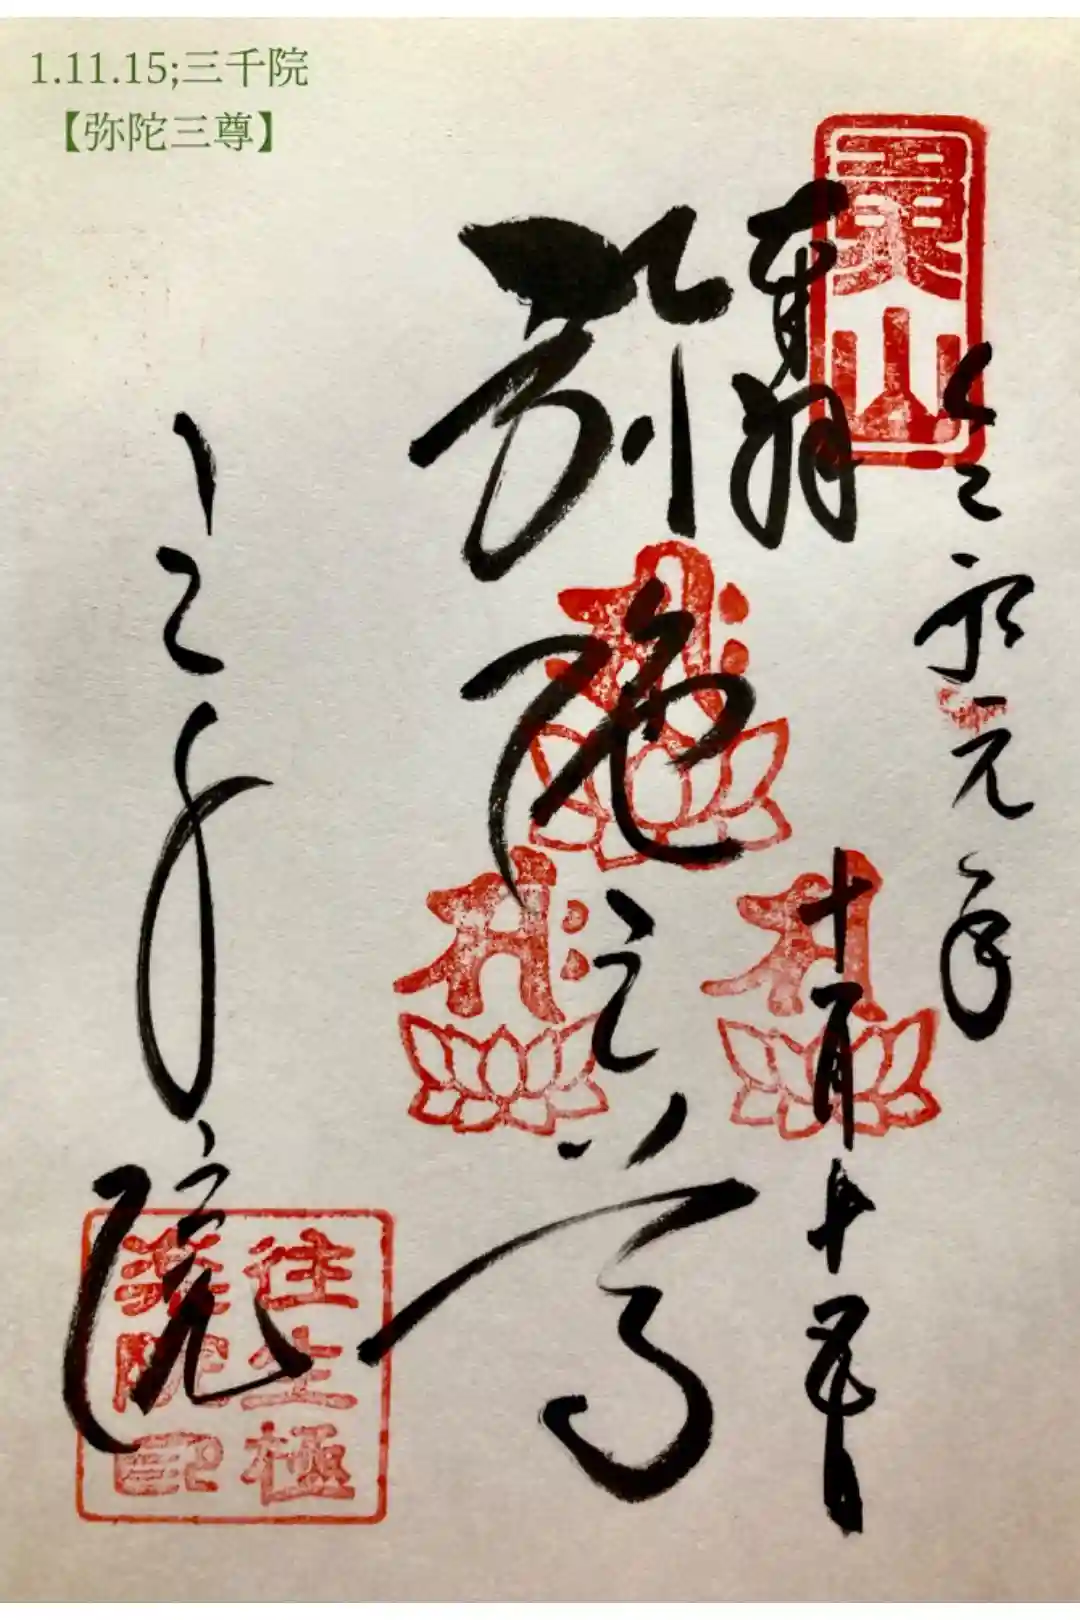 1.11.15;三千院
【弥陀三尊】
奉拝
令和元年
十一月十五日
弥陀三尊
三千院
往生極
楽院印